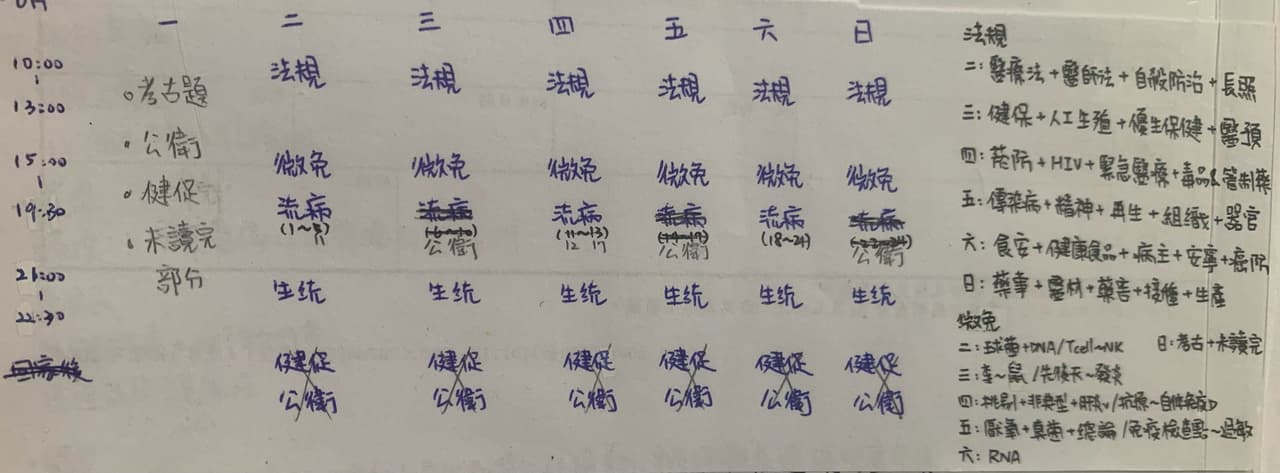 一 二 三 四 五 六 日
10:00
|
13:00
法規 法規 法規 法規 法規 法規
。考古題
• 公衛
• 健促
• 未讀完
部分
15:00
|
19:30
微免 微免 微免 微免 微免 微免
流病 流病 流病 流病 流病 流病
(11~13) (18~21)
公衛 12 17 公衛 公衛
21:00
|
22:30
生統 生統 生統 生統 生統 生統
回家後
健促 健促 健促 健促 健促 健促
公衛 公衛 公衛 公衛 公衛 公衛
法規
二: 醫療法+醫師法+自殺防治+長照
三: 健保+人工生殖+優生保健+醫預
四: 菸防+HIV+緊急醫療+毒品&管制藥
五: 傳染病+精神+再生+組織+器官
六: 食安+健康食品+病主+安寧+癌防
日: 藥事+醫材+藥害+接種+生產
微免
二: 球菌+DNA/Tcell~NK 日: 考古+未讀完
三: 李~鼠/先後天~發炎
四: 披衣+非典型+肝炎v/抗原~自體免疫D
五: 厭氧+真菌+總論/免疫檢查點~過敏
六: RNA